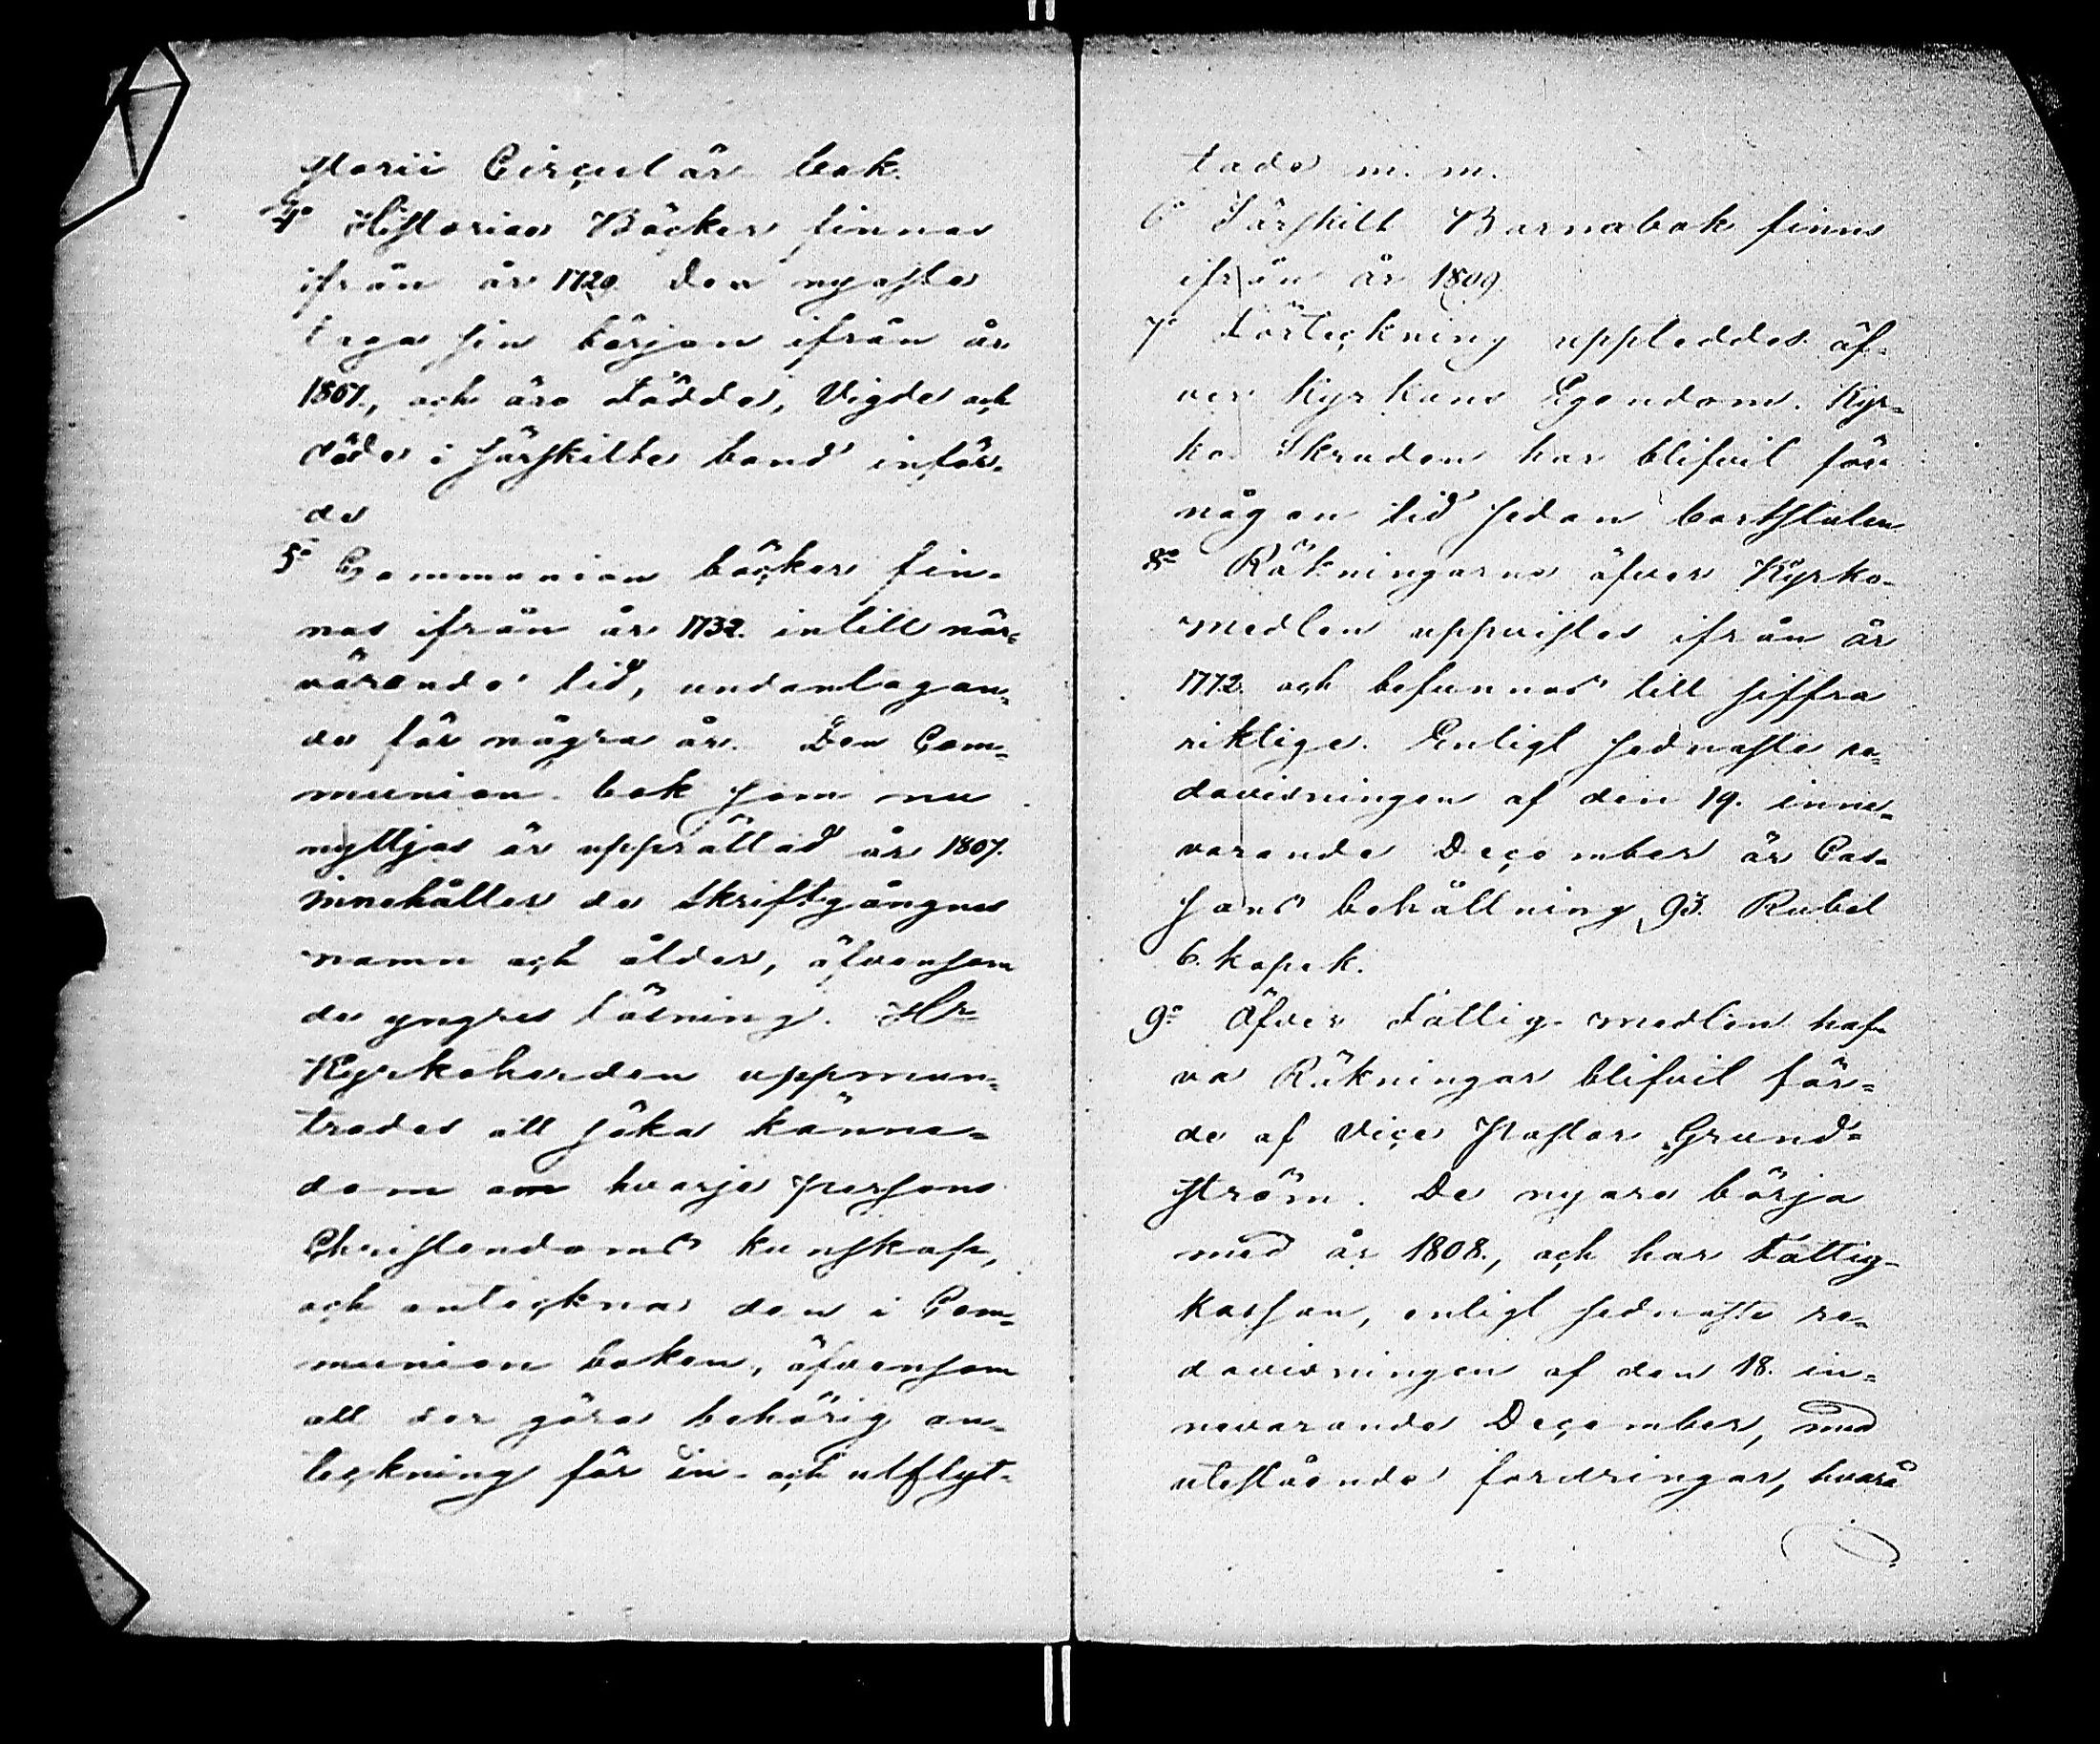 storii Circulär bok.
4o Historiae Böcker finnas
ifrån år 1729. Den nyaste
taga sin början ifrån år
1807., och äro Födde, Vigde och
döde i särskilte band inför-
de
5o Communion böcker fin-
nas ifrån år 1732. intill när-
värande tid, undantagan-
de för några år. Den Com-
munion-bok som nu
nyttjas är upprättad år 1807.
innehåller de Skriftgångnes
namn och ålder, äfvensom
de yngres läsning. Hr
Kyrkoherden uppmun-
trades att söka känne-
dom om hvarje persons
Christendoms kunskap,
och anteckna den i Com-
munion boken, äfvensom
att der göra behörig an-
teckning för in- och utflyt-
tade m. m.
6o Särskilt Barnabok finns
ifrån år 1809.
7o Förteckning uppleddes öf-
ver Kyrkans Egendom. Kyr-
ko Skruden har blifvit för
någon tid sedan bortstulen
8o Räkningarne öfver Kyrko-
medlen uppvistes ifrån år
1772. och befunnos till siffra
riktige. Enligt sednaste re-
dovisningen af den 19. inne-
varande December är Cas-
sans behållning 93. Rubel
6. kopek.
9o Öfver Fattig-medlen haf-
va Räkningar blifvit för-
de af Vice Pastor Grund-
ström. De nyare börja
med år 1808., och har Fattig-
kassan, enligt sednaste re-
dovisningen af den 18. in-
nevarande December, med
utestående fordringar, hvarå